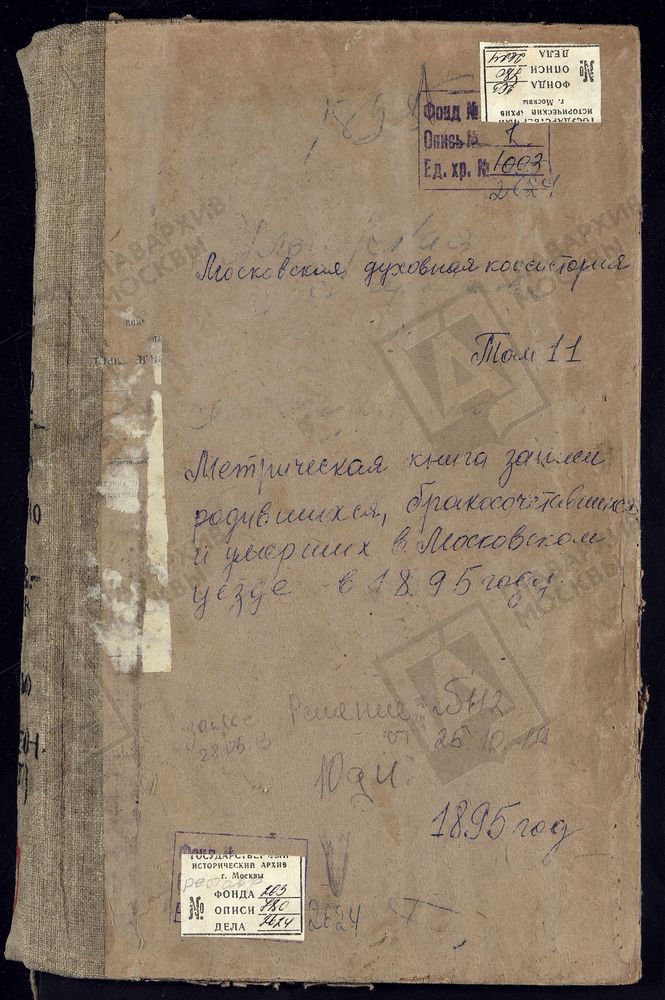 ГОСУДАРСТВЕННЫЙ
ИСТОРИЧЕСКИЙ АРХИВ
г. Москвы
№
ФОНДА 203
ОПИСИ 780
ДЕЛА 2624
1895
Фонд №
Опись № 1
Ед. хр. № 1093
2624
Московская духовная консистория
Том 11
Метрическая книга записи
родившихся, бракосочетавшихся
и умерших в Московском
уезде в 1895 году.
запрос
28.05.13
Решение
от 25.10.
1895 год
Фонд №
ГОСУДАРСТВЕННЫЙ
ИСТОРИЧЕСКИЙ АРХИВ
г. Москвы
№
ФОНДА 203
ОПИСИ 780
ДЕЛА 2624
2624
ГЛАВАРХИВ
МОСКВЫ
ГЛАВАРХИВ
МОСКВЫ
ГЛАВАРХИВ
МОСКВЫ
ГЛАВАРХИВ
МОСКВЫ